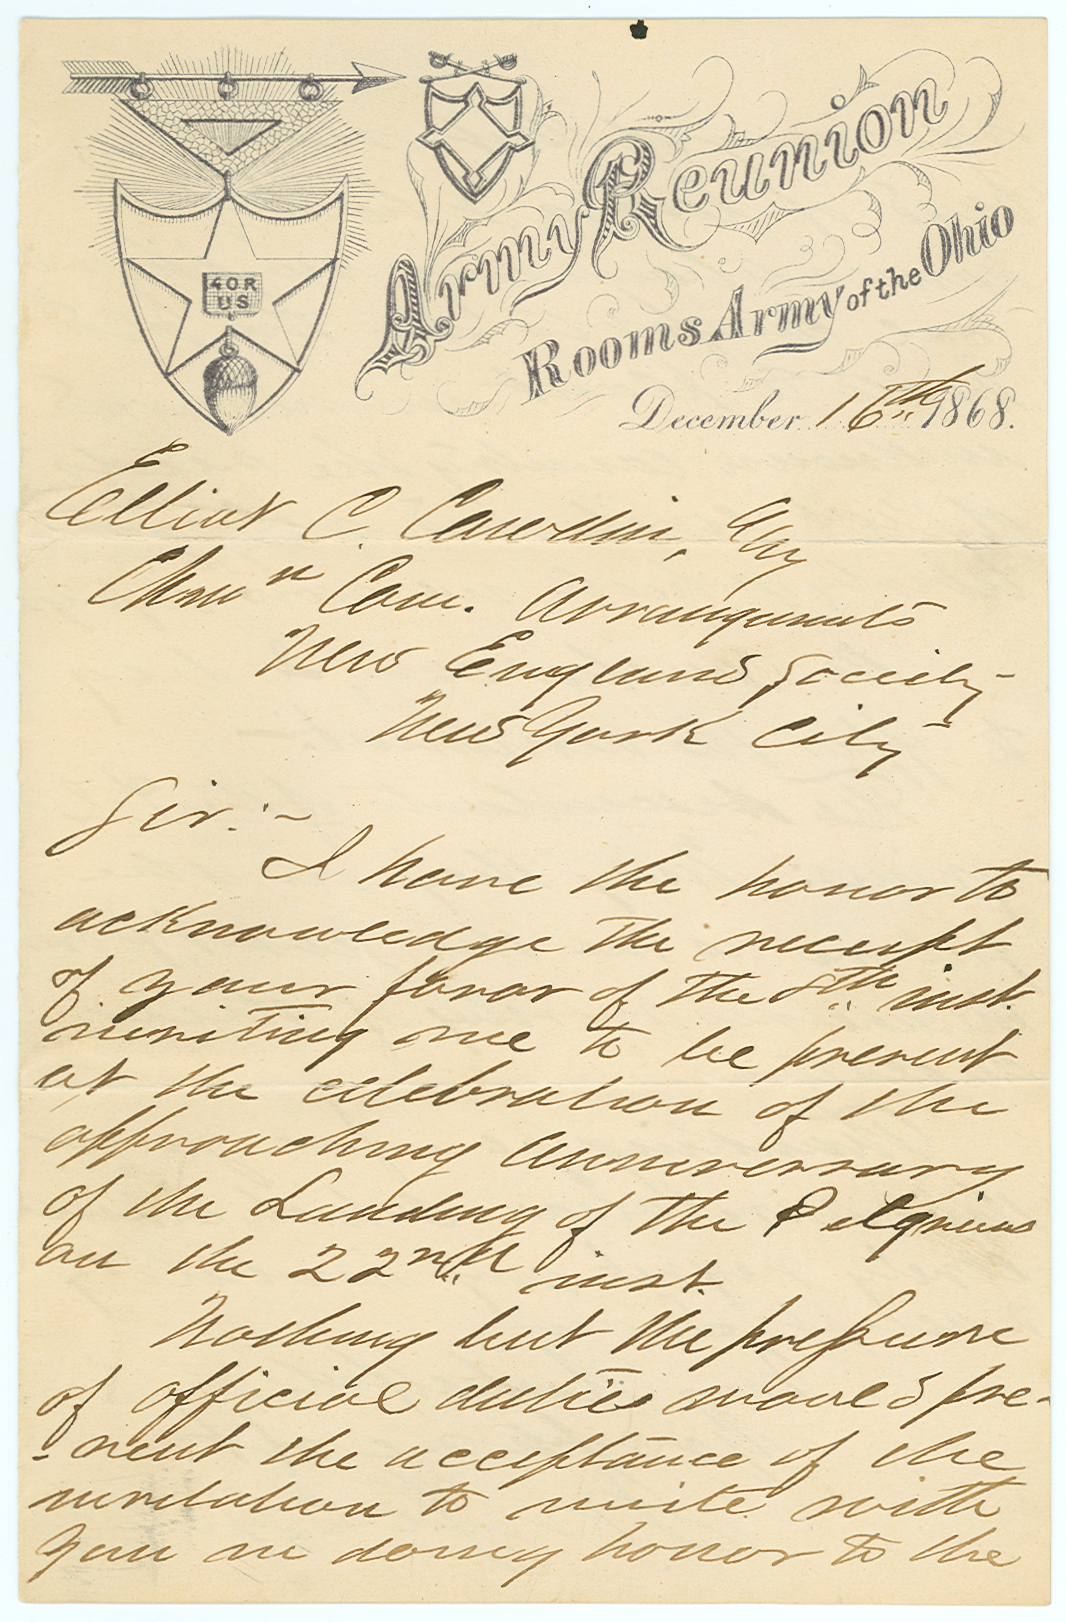 40R
US
Army Reunion
Rooms Army of the Ohio
December 16th 1868.
Elliot C. Cowdin, Esq
Chmn Com. Arrangements
New England Society
New York City
Sir:-
I have the honor to
acknowledge the receipt
of your favor of the 8th inst.
inviting me to be present
at the celebration of the
approaching anniversary
of the Landing of the Pilgrims
on the 22nd inst.
Nothing but the pressure
of official duties would pre-
-vent the acceptance of the
invitation to unite with
you in doing honor to the